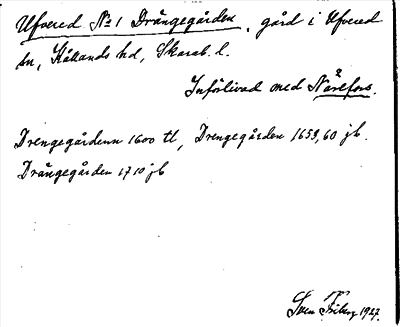 Ufvered No 1 Drängegården, gård i Ufvered
sn, Kållands hd, Skarab. l.
Införlivad med Nårefors.
Drengegårdenn 1600 tl, Drengegården 1659, 60 jb.
Drängegården 1710 jb
Sven Friberg 1927.